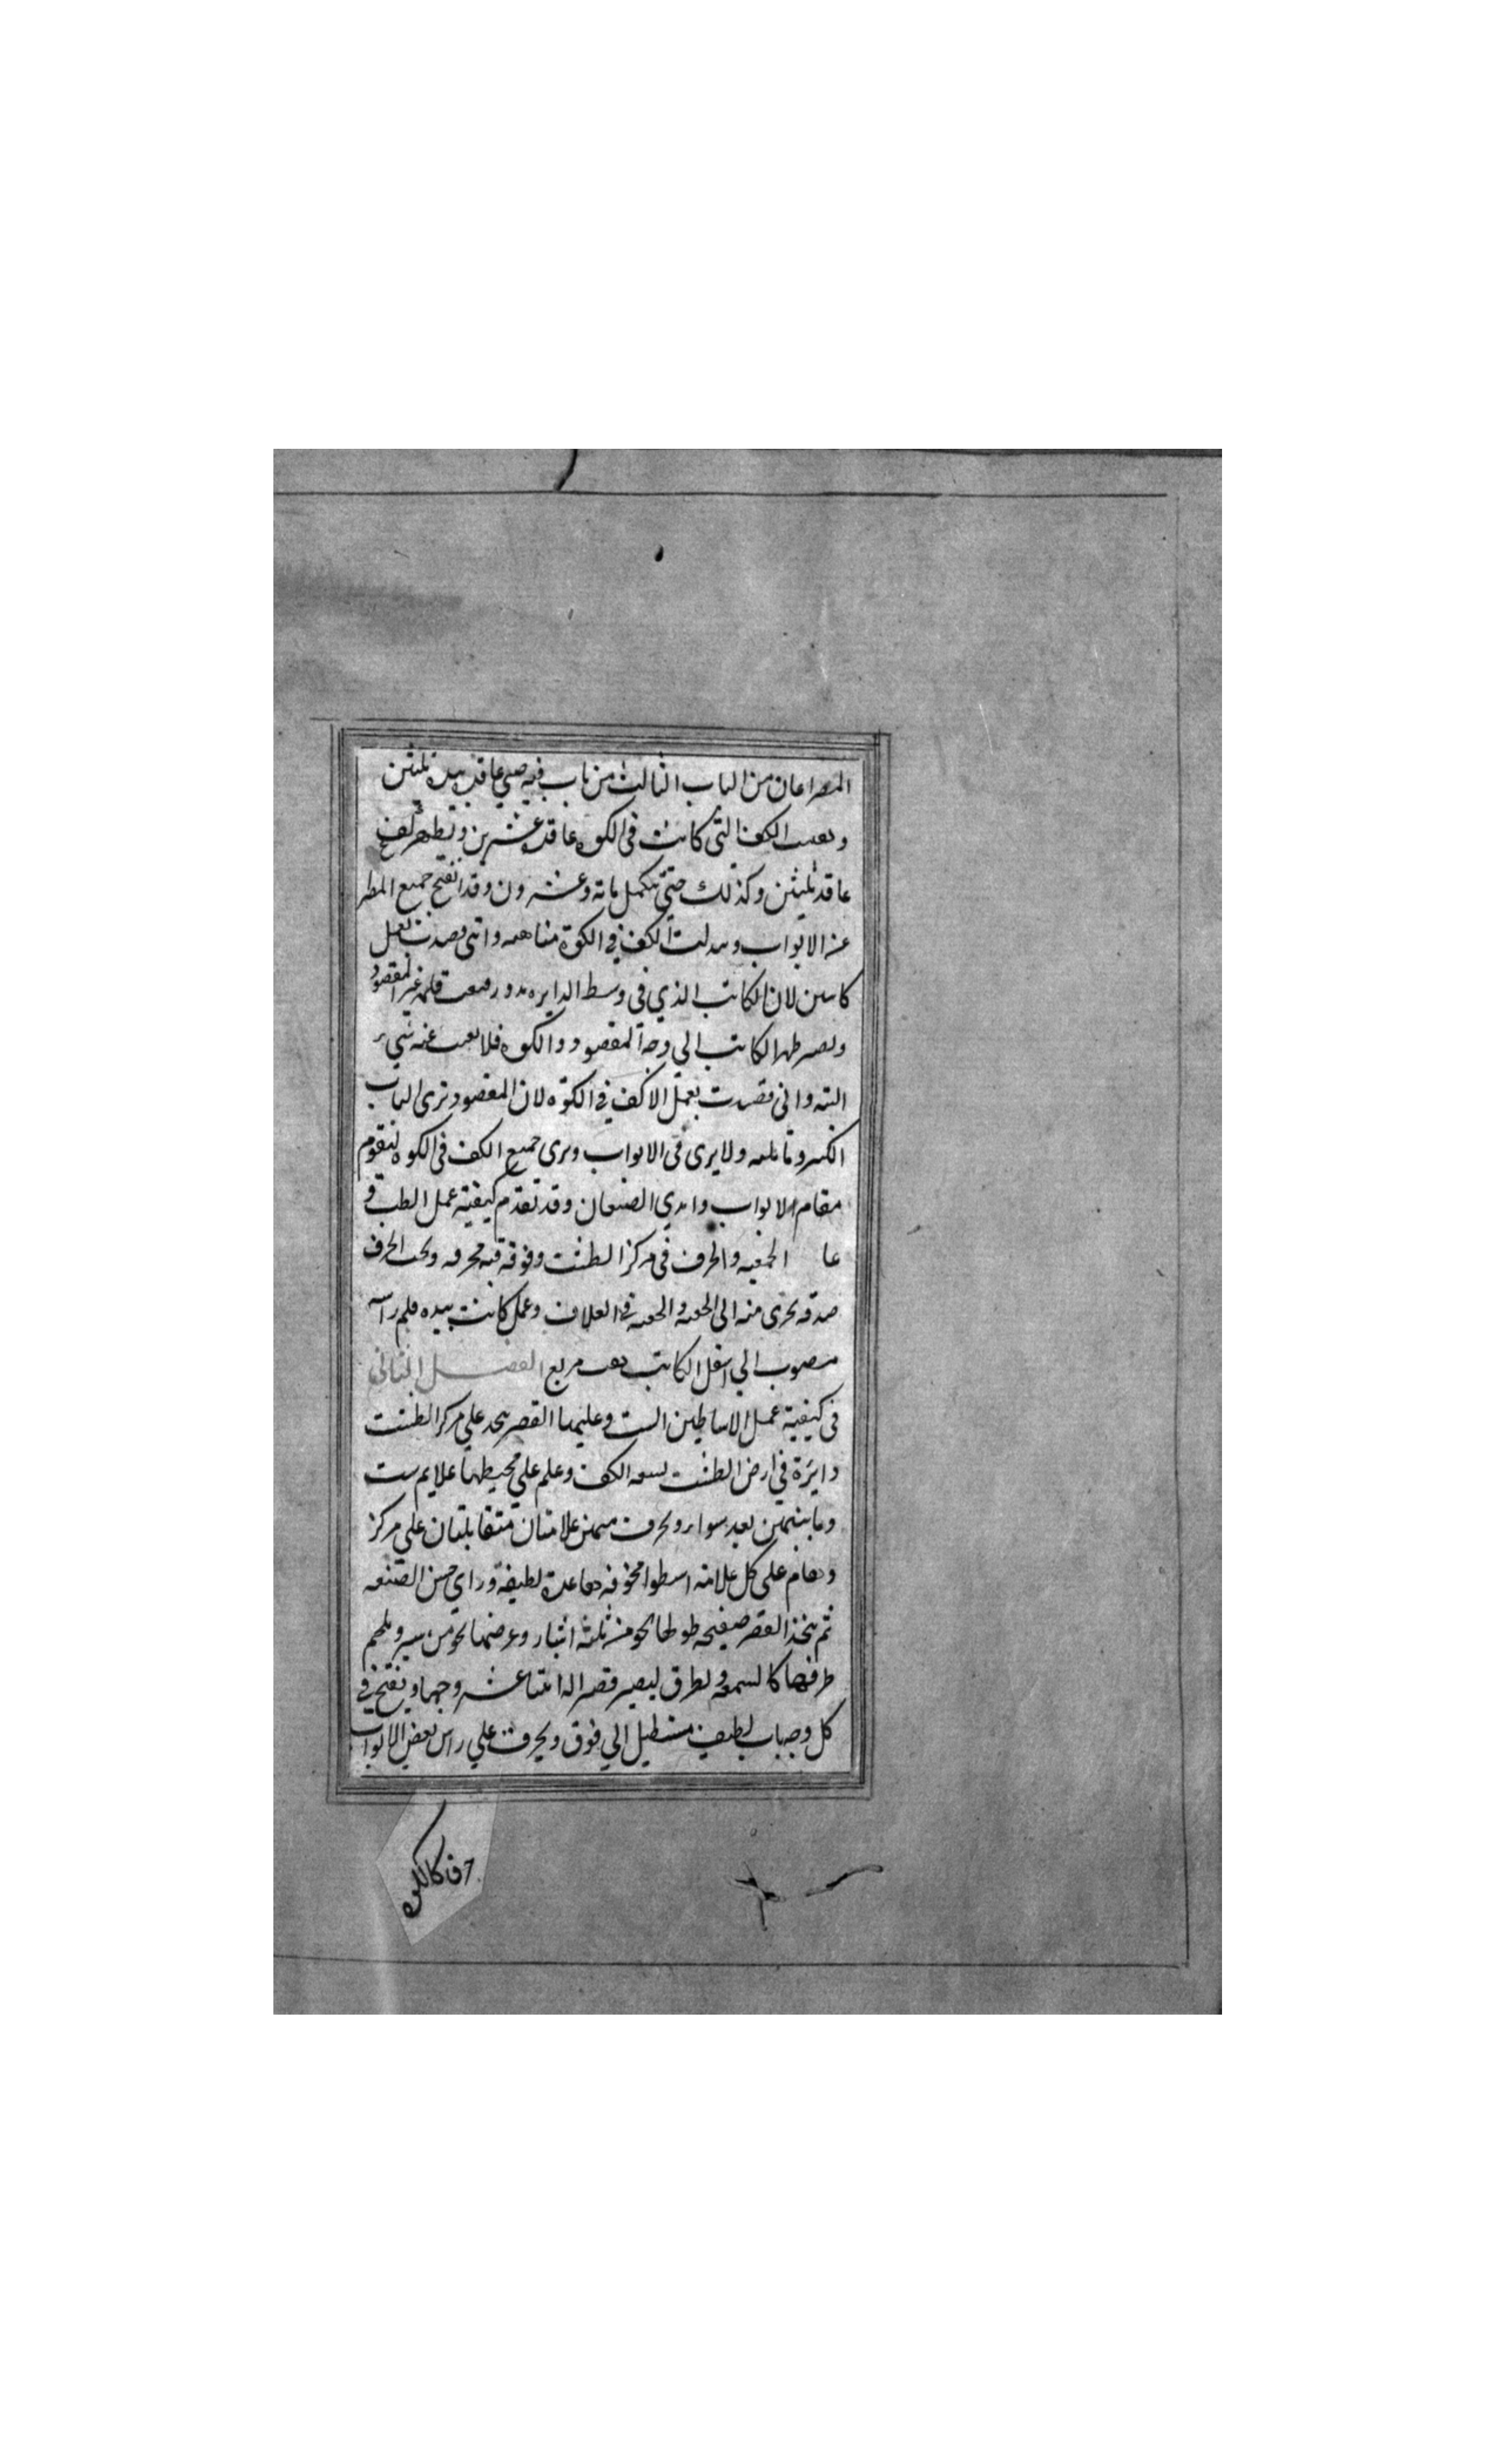 المصراعان من الباب الثالث من باب فيه صبي عاقد بيده ثلثين
وتغيب الكف التي كانت في الكوه عاقد عشرين وتظهر كف
عاقد ثلثين وكذلك حتي تكمل مائة وعشرون وقد انفتح جميع المطر
عنه الابواب وبدلت الكف في الكوة متناهيه وانني قصدت بعمل
كاتبين لان الكاتب الذي في وسط الدايره يدور فيغيب قلمه عن المقصود
ويصير ظهر الكاتب الي وجه المقصود و الكوه فلا يغيب عنه شيء
البته واني قصدت بعمل الاكف في الكوة لان المقصود يرى الباب
الكبير وما يليه ولا يرى في الابواب ويرى جميع الكف في الكوه ليقوم
مقام الابواب وايدي الصبيان وقد تقدم كيفية عمل الطبق و
عا الحقيه والخرق في مركز الطشت وفوقه قبه مخرمه وتحت الخرق
صدفه يجرى منه الى الحقه والحقه في الغلاف وعمل كاتب بيده قلم راسه
منصوب الي اسفل الكاتب ثقب مربع الفصل الثاني
في كيفية عمل الاساطين الست وعليها القصر يتخذ علي مركز الطشت
دايرة في ارض الطشت لسعه الكف وعلم علي محيطها علايم ست
وما بينهن بعد سواء ويخرق منهن علامتان متقابلتان علي مركز
ويقام على كل علامه اسطوانه مجوفه بقاعدة لطيفة وراي حسن الصنعه
ثم يتخذ القصر صفيحه طولها نحو من ثلثه اشبار وعرضها نحو من شبر ويلحم
طرفها كالشمعه ويطرق ليصير قصرا له اثنتا عشر وجها ويفتح في
كل وجه باب لطيف مستطيل الي فوق ويخرق علي راس بعض الابواب
خرق كالكوه